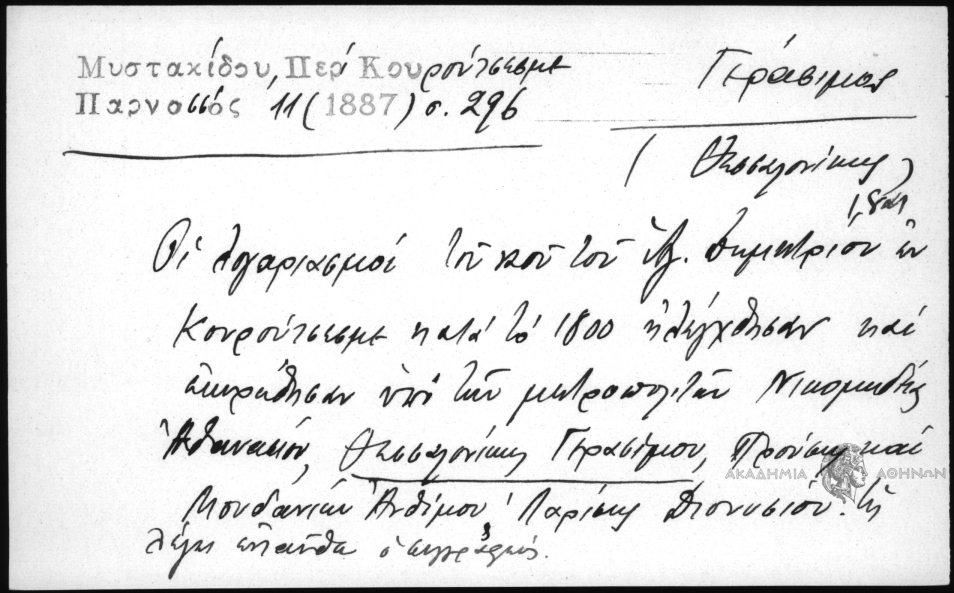 Μυστακίδου, Περί Κουρούτσεσμε
Παρνασσός 11 (1887) σ. 296
Γεράσιμος
(Θεσσαλονίκης)
Οἱ λογαριασμοί τοῦ ναοῦ τοῦ Ἁγ. Δημητρίου ἐν
Κουρούτσεσμε κατά τό 1800 ἠλέγχθησαν καί
ἐπεκυρώθησαν ὑπό τῶν μητροπολιτῶν Νικομηδείας
Ἀθανασίου, Θεσσαλονίκης Γερασίμου, Προύσης καί
ΑΚΑΔΗΜΙΑ ΑΘΗΝΩΝ
Μουδανιῶν Ἀνθίμου, Λαρίσης Διονυσίου. ὡς
λέγει ἐνταῦθα ὁ συγγραφεύς.